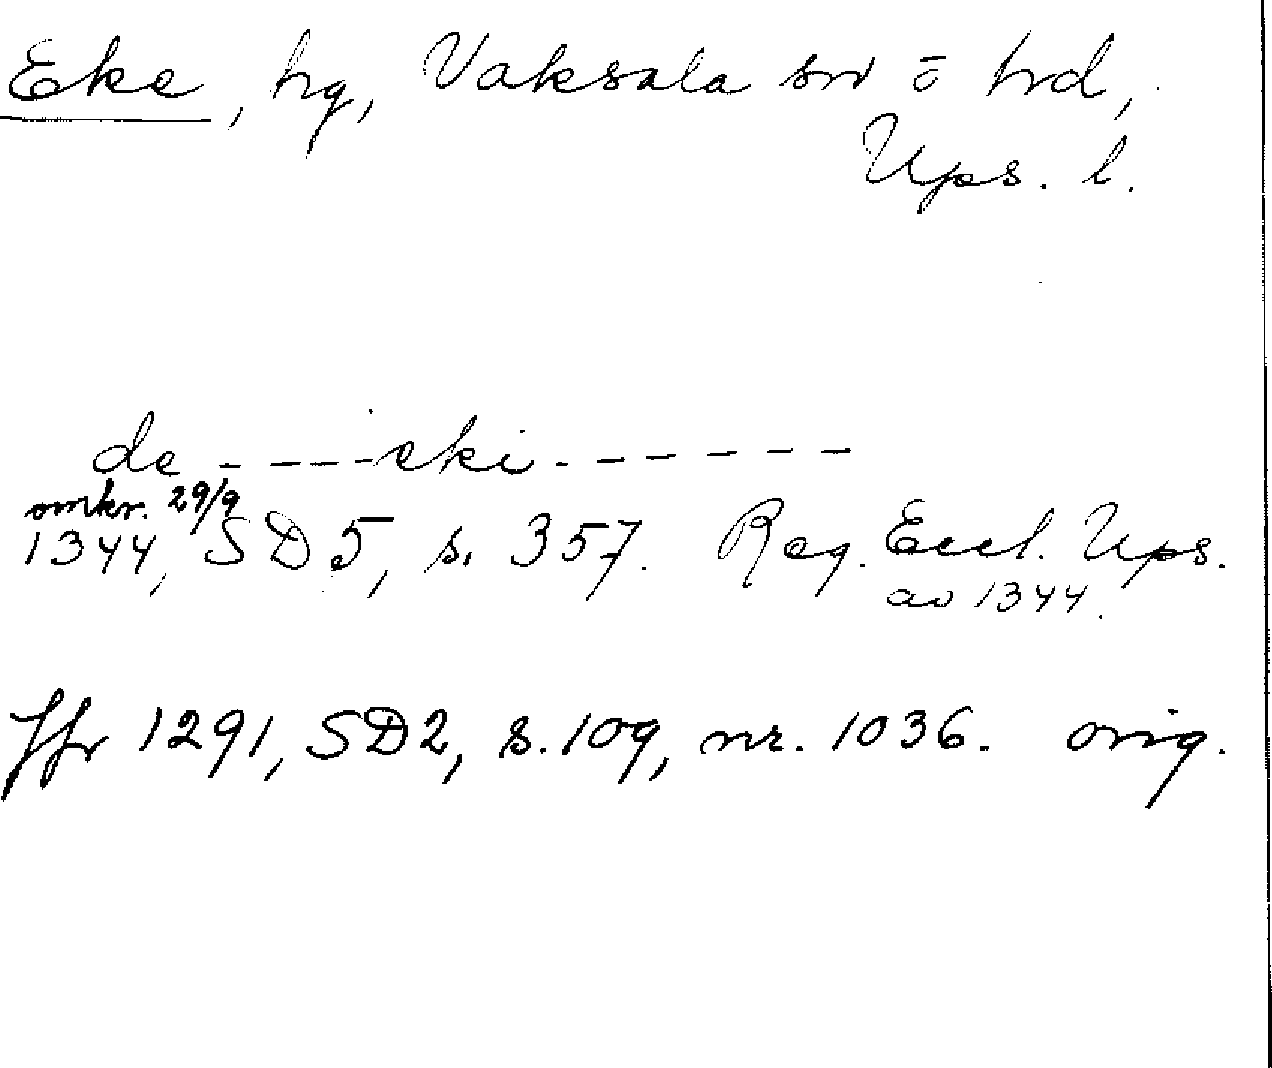 Eke, hg, Vaksala sn ō hd,
Ups. l.
de - - - - eki - - - - - - -
omkr. 29/9
1344, SD 5, s. 357. Reg. Eccl. Ups.
av 1344.
Jfr 1291, SD2, s. 109, nr. 1036. orig.